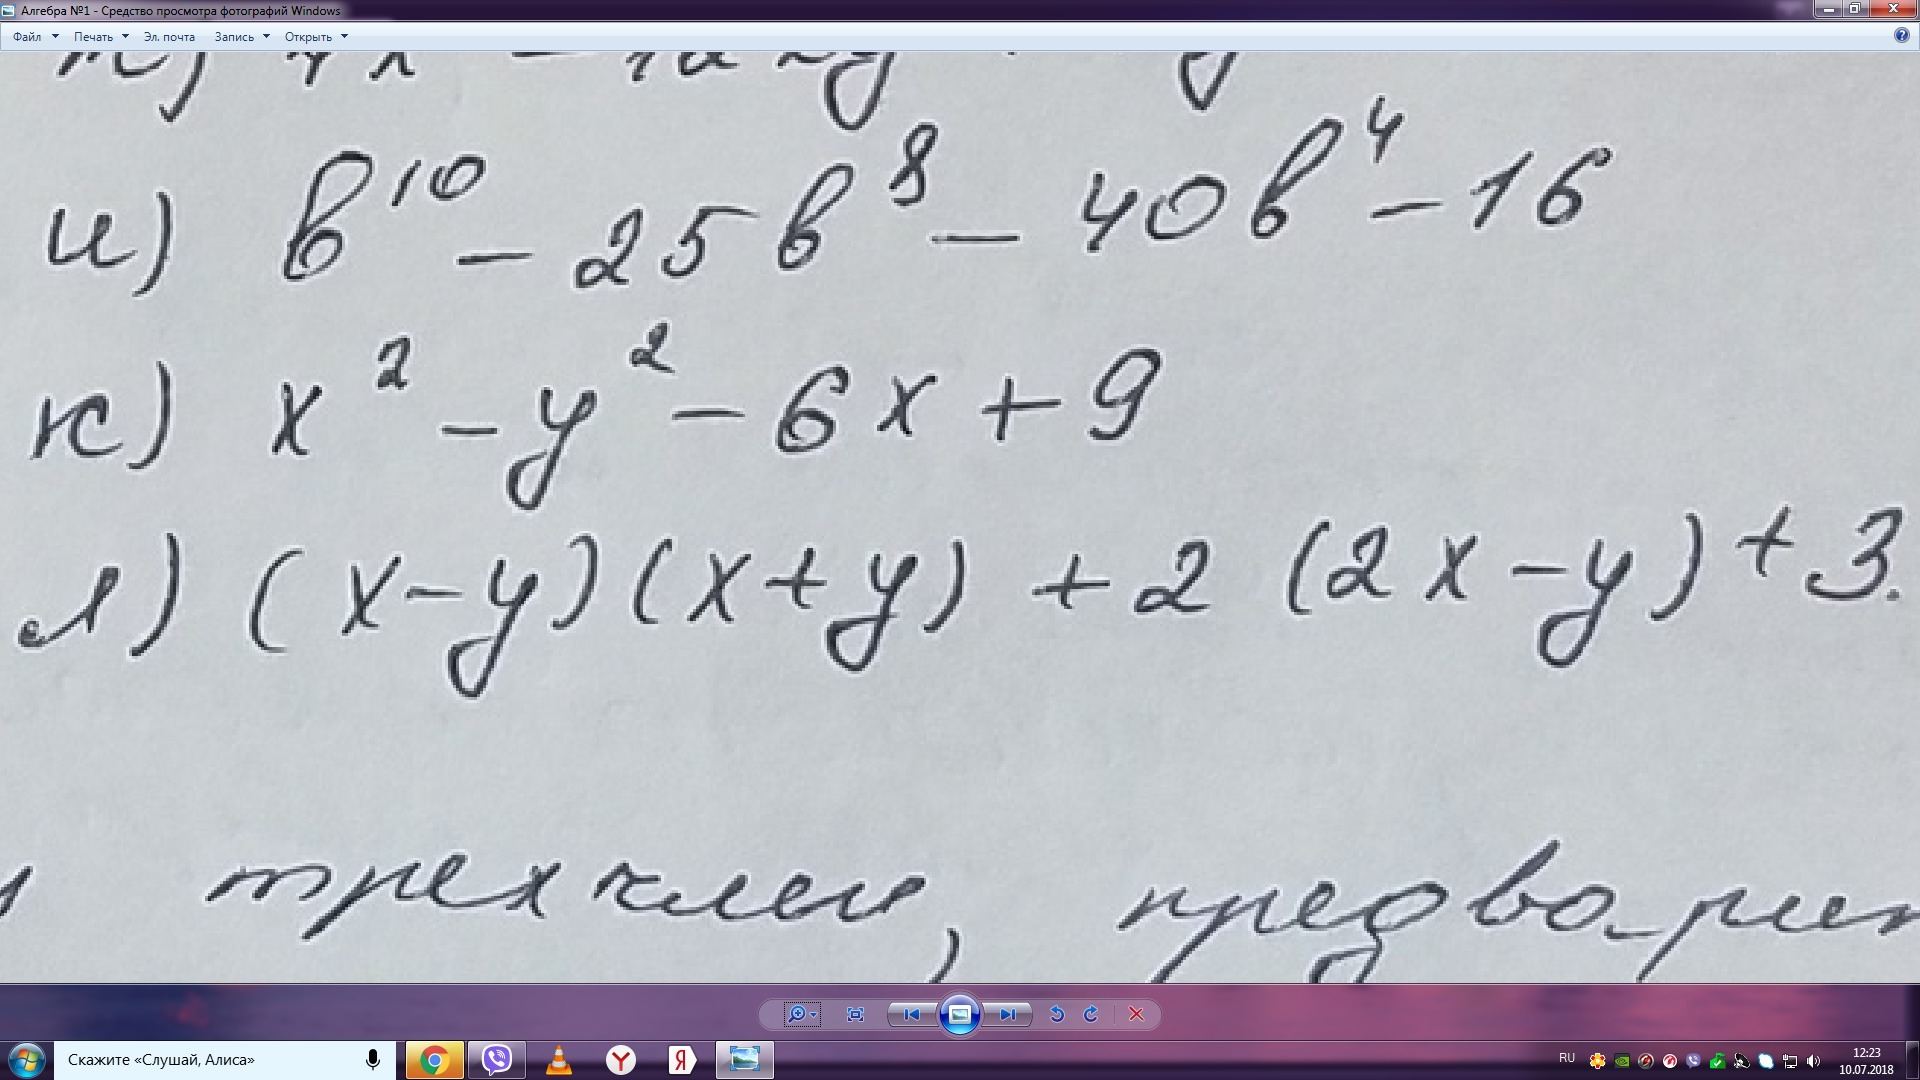 Алгебра №1 - Средство просмотра фотографий Windows
Файл Печать Эл. почта Запись Открыть
и) в¹⁰ - 25в⁸ - 40в⁴ - 16
к) x² - y² - 6x + 9
л) (x-y)(x+y) + 2 (2x-y) + 3.
трехчлен,
Скажите «Слушай, Алиса»
RU
12:23
10.07.2018